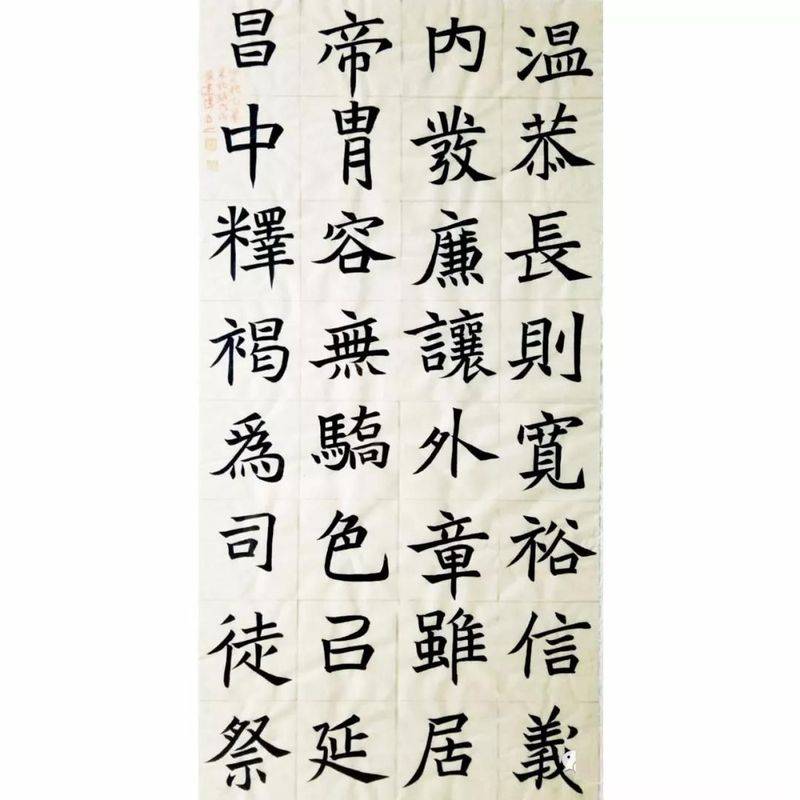 温恭長則寬裕信義
内發廉讓外章雖居
帝胄容無驕色㠯延
昌中釋褐爲司徒祭